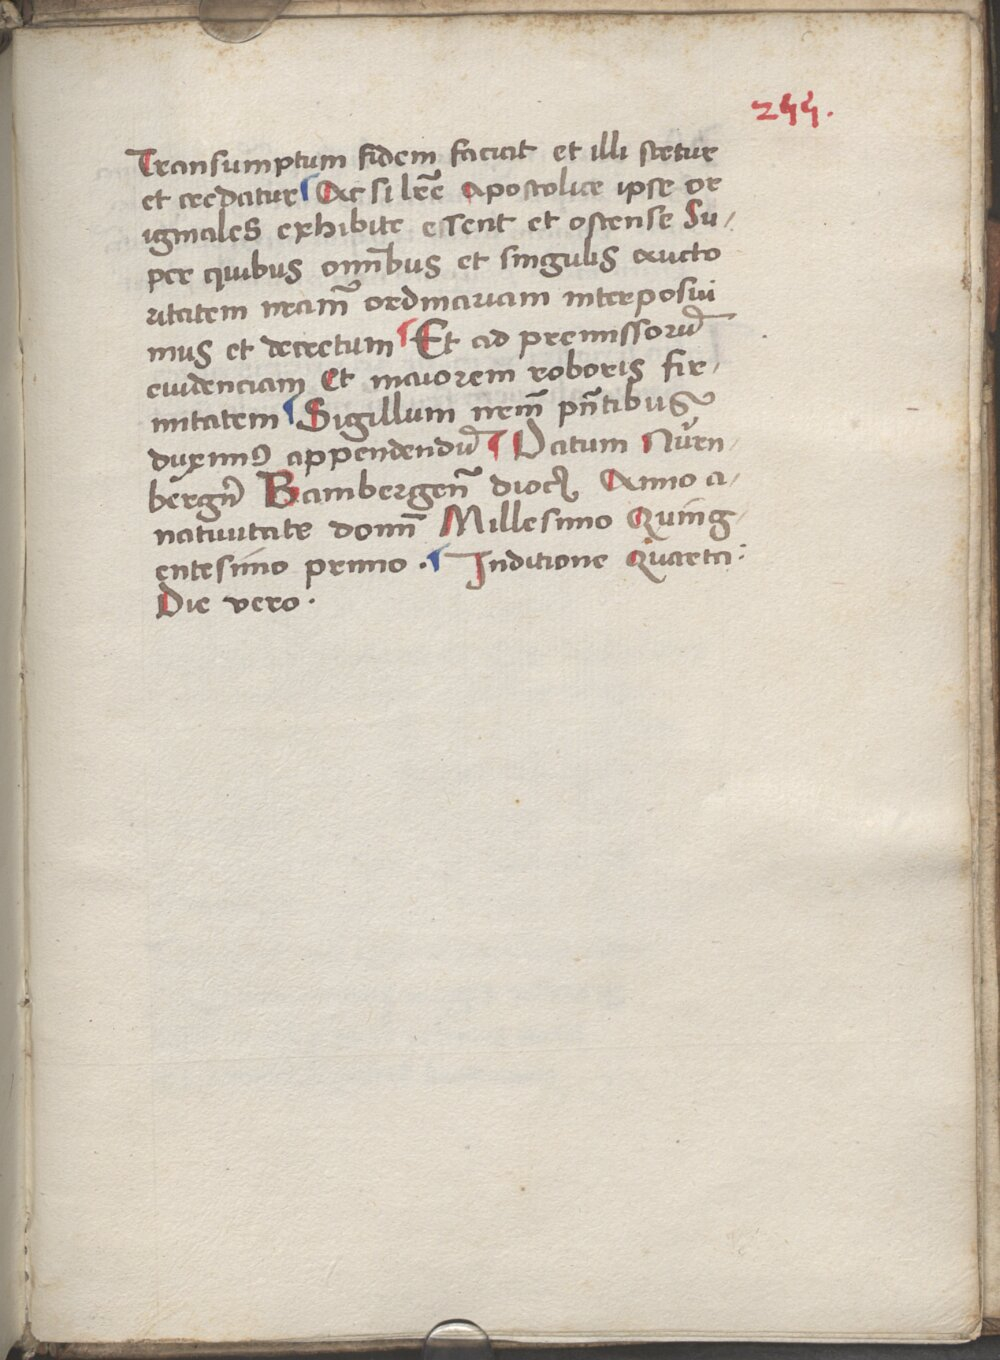 255.
Transumptum fidem faciat et illi stetur
et credatur Ac si lr̄e Apostolice ipse or
iginales exhibite essent et ostense Su/
per quibus omn̄ibus et singulis aucto
ritatem nr̄am̄ ordinariam interposui
mus et decretum Et ad premissorū
euidenciam Et maiorem roboris fir/
mitatem Sigillum nr̄m̄ pn̄tibus
duximꝰ appendendū Datum Nůrn/
bergn̄ Bambergen̄ dioc̄ Anno a/
natiuitate domn̄ Millesimo Quing/
entesimo primo . Inditione Quarta:
Die vero .